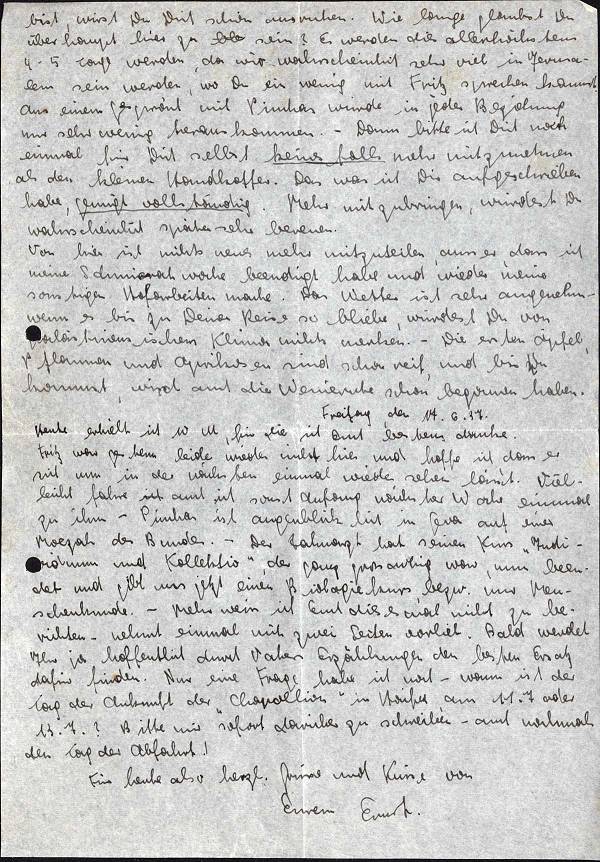 bist, wirst Du Dich schön ausruhen. Wie lange glaubst Du
überhaupt hier zu sein? Es werden dies allerhöchstens
4-5 Tage werden, da wir wahrscheinlich sehr viel in Jerusa-
lem sein werden, wo Du ein wenig mit Fritz sprechen kannst.
Aus einem Gespräch mit Pinchas würde in jeder Beziehung
nur sehr wenig herauskommen. - Dann bitte ich Dich noch
einmal für Dich selbst keinesfalls mehr mitzunehmen
als den kleinen Handkoffer. Das was ich Dir aufgeschrieben
habe, genügt vollständig. Mehr mitzubringen, würdest Du
wahrscheinlich später sehr bereuen.
Von hier ist nichts neues mehr mitzuteilen ausser dass ich
meine Schmirah woche beendigt habe und wieder meine
sonstigen Hofarbeiten mache. Das Wetter ist sehr angenehm -
wenn es bis zu Deiner Reise so bliebe, würdest Du vom
palästinensischen Klima nichts merken. - Die ersten Äpfel,
Pflaumen und Aprikosen sind schon reif, und bis Du
kommst, wird auch die Weinernte schon begonnen haben.
Freitag den 14.6.37.
Heute erhielt ich 10 M, für die ich Euch bestens danke.
Fritz war gestern leider wieder nicht hier und hoffe ich dass er
sich nun in der nächsten einmal wieder sehen lässt. Viel-
leicht fahre ich auch ich sonst Anfang nächster Woche einmal
zu ihm - Pinchas ist augenblicklich in Geva auf einer
Moezah des Bundes. - Der Zahnarzt hat seinen Kurs "Indi-
viduum und Kollektiv", der ganz grossartig war nun been-
det und gibt uns jetzt einen Biologiekurs bezw. nur Men-
schenkunde. - Mehr weiss ich Euch diesmal nicht zu be-
richten - nehmt einmal mit zwei Seiten vorlieb. Bald werdet
Ihr ja hoffentlich durch Vaters Erzählungen den besten Ersatz
dafür finden. Nur eine Frage habe ich noch - wann ist der
Tag der Ankunft der "Champollion" in Haifa am 11.7 oder
13.7.? Bitte mir sofort darüber zu schreiben - auch nochmals
den Tag der Abfahrt!
Für heute also herzl. Grüsse und Küsse von
Eurem Ernst.